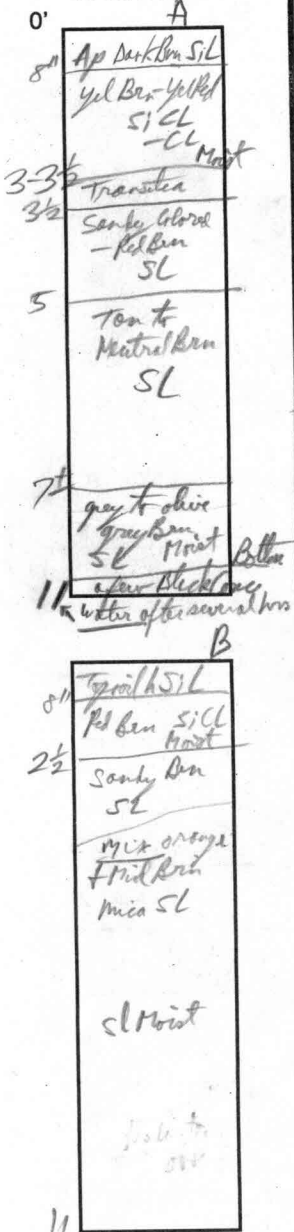 A
0'
Ap Dark Brn SiL
8"
Yel Brn-Yel Red
SiCL
-CL
Moist
3-3½
3½
Sandy Colored
- Red Brn
SL
5
Tan to
Neutral Brn
SL
7±
grey to olive
gray Brn
SL Moist Bottom
a few Black
11 Water after several hrs
B
Topsoil SiL
8"
Red Brn SiCL
Moist
2½
Sandy Brn
SL
Mix orange
+ Mid Brn
Mica SL
sl Moist
11